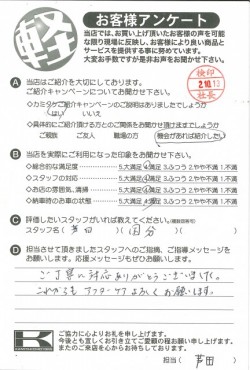 軽
お客様アンケート
当店では、お買い上げ頂いたお客様の声を可能
な限り現場に反映し、お客様により良い商品と
サービスを提供する事に努めています。
大変お手数ですが是非お声をお聞かせ下さい。
A 当店はご紹介を大切にしております。
ご紹介キャンペーンについてお聞かせ下さい。
検印
2.10.13
社長
・カミタケご紹介キャンペーンのご説明はありましたでしょうか
はい いいえ
・具体的にご紹介頂ける方との関係をお聞かせ頂けますでしょうか
ご親族 ご友人 職場の方 機会があれば紹介したい
B 当店を実際にご利用になった印象をお聞かせ下さい。
・総合的な満足度 5.大満足 4.満足 3.ふつう 2.やや不満 1.不満
・スタッフの対応 5.大満足 4.満足 3.ふつう 2.やや不満 1.不満
・お店の雰囲気、清掃 5.大満足 4.満足 3.ふつう 2.やや不満 1.不満
・納車時のお車の状態 5.大満足 4.満足 3.ふつう 2.やや不満 1.不満
C 評価したいスタッフがいれば教えてください。(複数回答可)
スタッフ名( 芦田 )( 国分 )
D 担当させて頂きましたスタッフへのご指摘、ご指導メッセージを
お願いします。応援メッセージもぜひお願いします。
ご丁寧に対応ありがとうございました。
これからも アフターケア よろしくお願いします。
K
ご協力に心よりお礼を申し上げます。
今後とも宜しくお引き立てご愛顧の程お願い申し上げます。
またのご来店を心からお待ちしております。
担当( 芦田 )